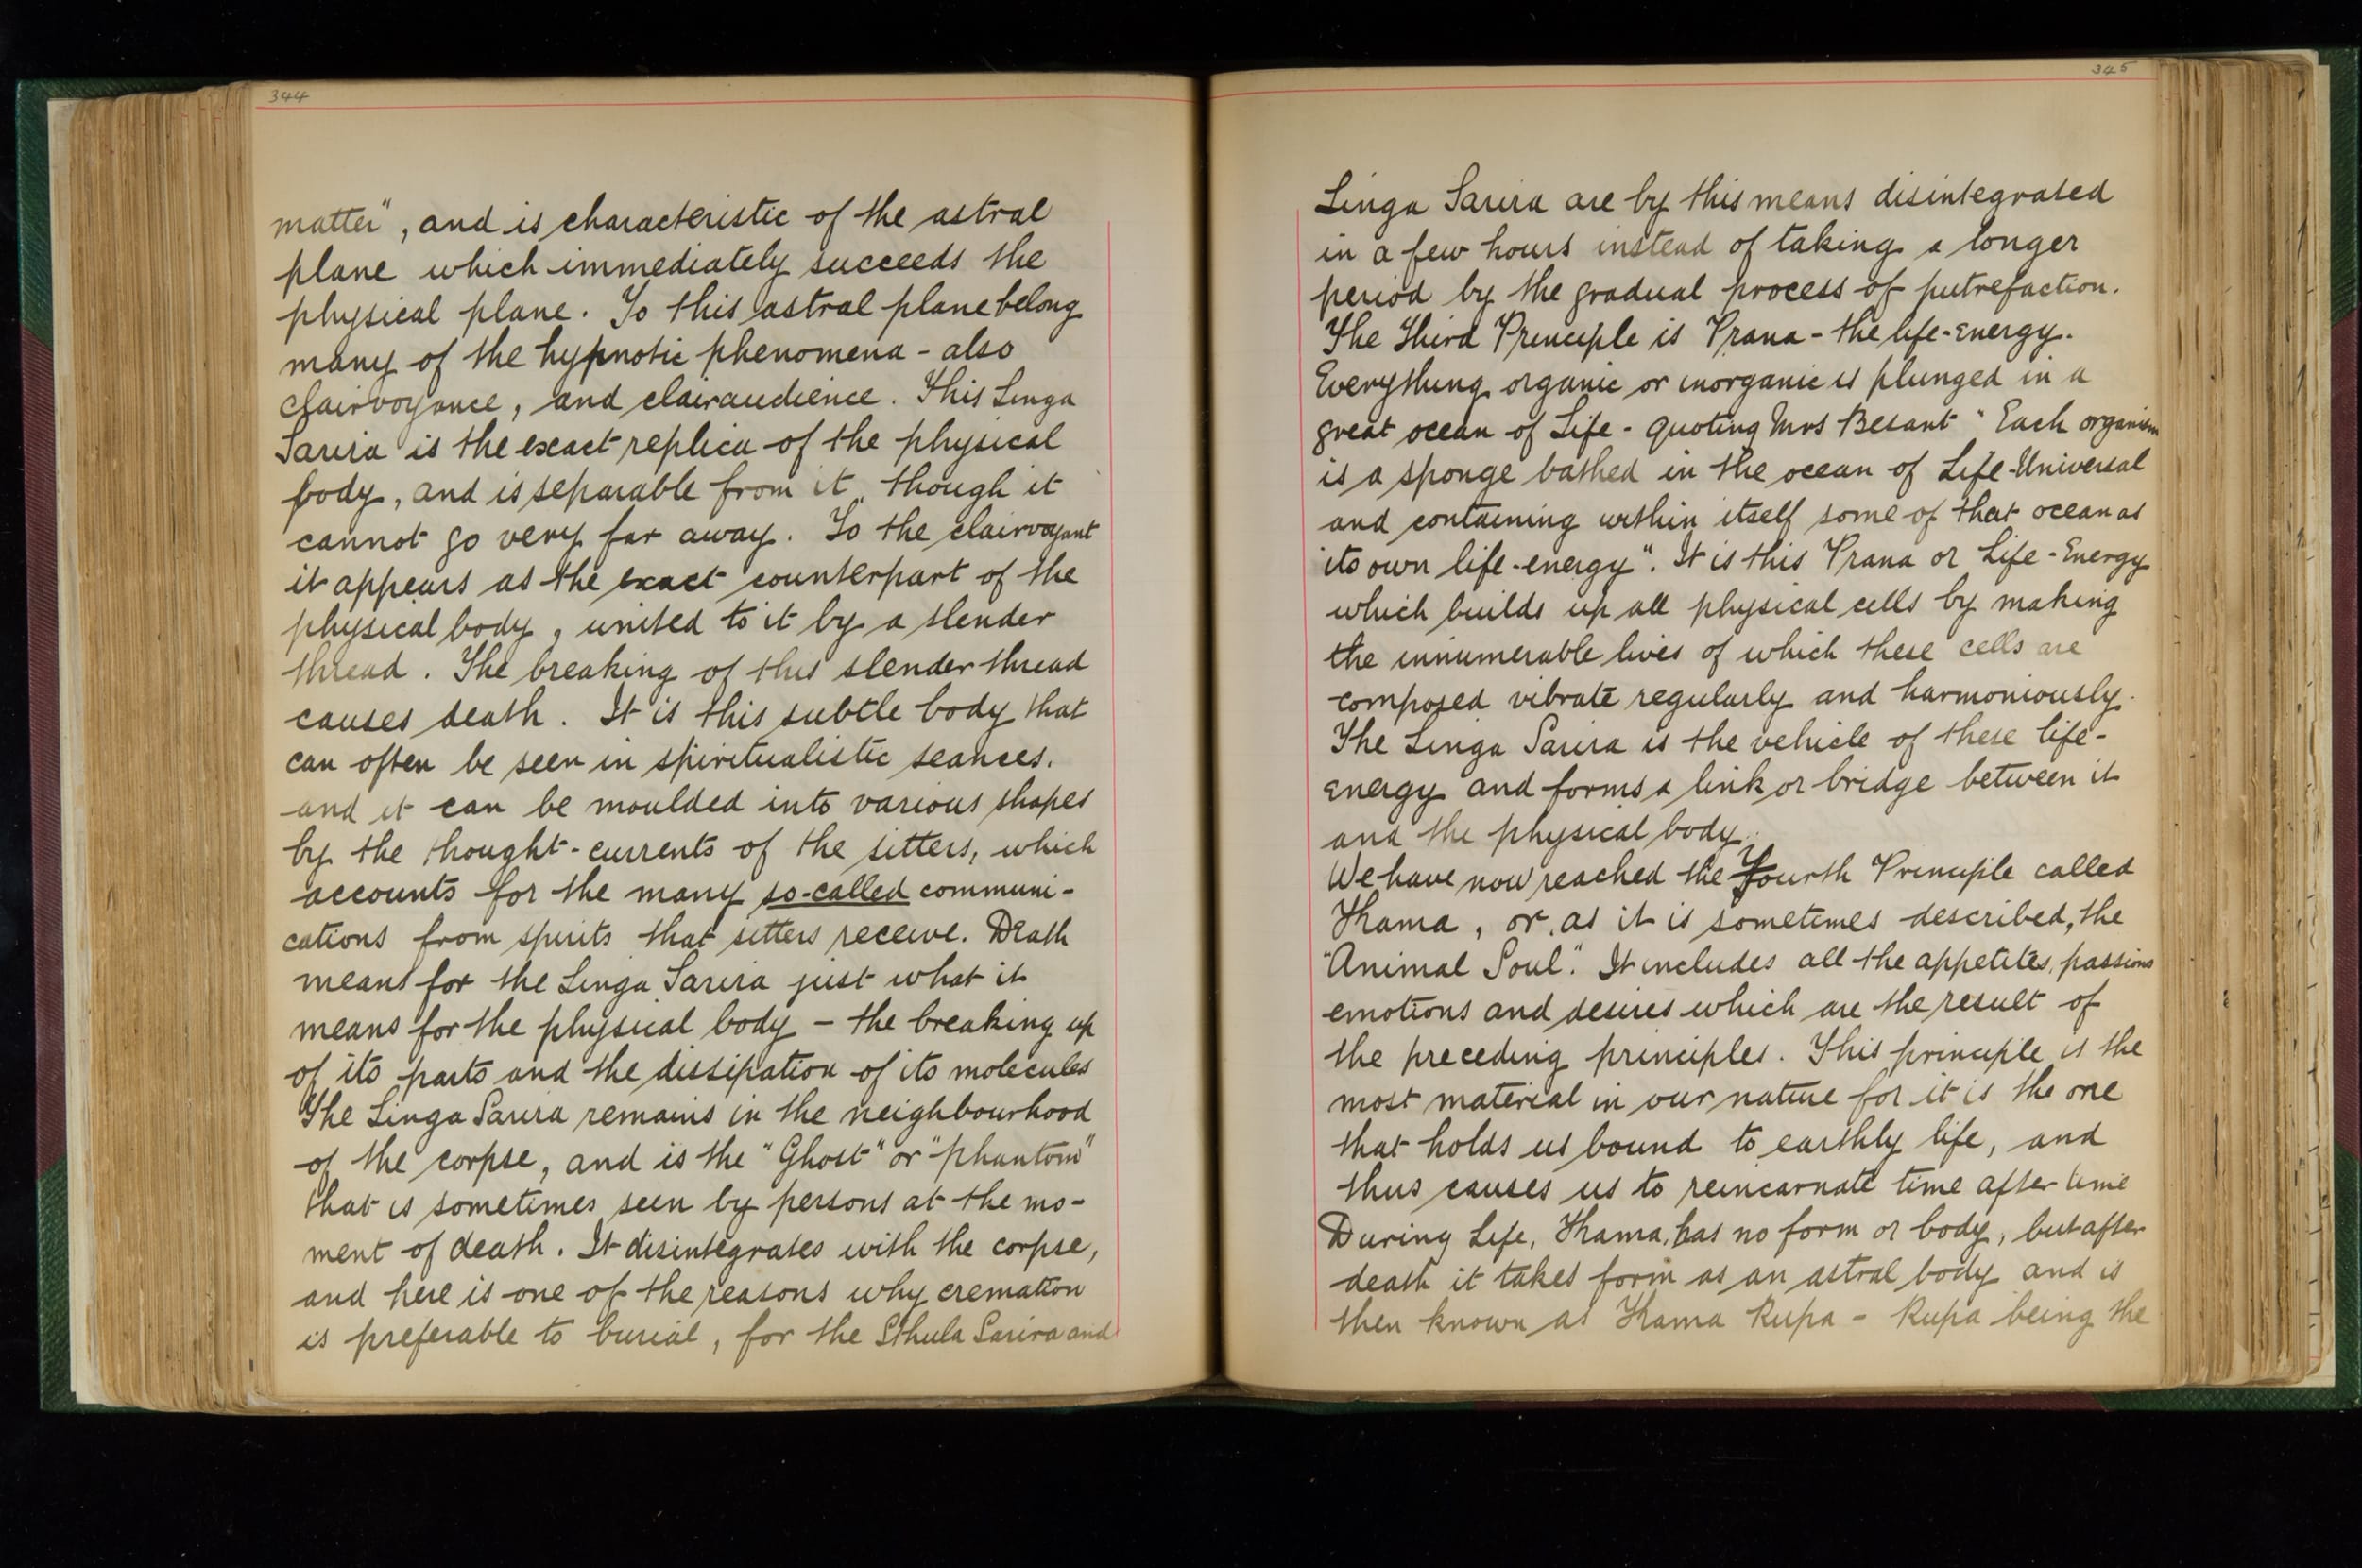 344
matter", and is characteristic of the astral
plane which immediately succeeds the
physical plane. To this astral plane belong
many of the hypnotic phenomena - also
clairvoyance, and clairaudience. This Linga
Sarira is the exact replica of the physical
body, and is separable from it, though it
cannot go very far away. To the clairvoyant
it appears as the exact counterpart of the
physical body, united to it by a slender
thread. The breaking of this slender thread
causes death. It is this subtle body that
can often be seen in spiritualistic seances.
and it can be moulded into various shapes
by the thought-currents of the sitters, which
accounts for the many so-called communi-
cations from spirits that sitters receive. Death
means for the Linga Sarira just what it
means for the physical body - the breaking up
of its parts and the dissipation of its molecules
The Linga Sarira remains in the neighbourhood
of the corpse, and is the "Ghost" or "phantom"
that is sometimes seen by persons at the mo-
ment of death. It disintegrates with the corpse,
and here is one of the reasons why cremation
is preferable to burial, for the Sthula Sarira and
345
Linga Sarira are by this means disintegrated
in a few hours instead of taking a longer
period by the gradual process of putrefaction.
The Third Principle is Prana - the life-energy.
Everything organic or inorganic is plunged in a
great ocean of Life - quoting Mrs Besant "Each organism
is a sponge bathed in the ocean of Life-Universal
and containing within itself some of that ocean as
its own life-energy". It is this Prana or Life-Energy
which builds up all physical cells by making
the innumerable lives of which these cells are
composed vibrate regularly and harmoniously.
The Linga Sarira is the vehicle of these life-
energy and forms a link or bridge between it
and the physical body.
We have now reached the Fourth Principle called
Khama, or, as it is sometimes described, the
"Animal Soul". It includes all the appetites, passions
emotions and desires which are the result of
the preceding principles. This principle is the
most material in our nature for it is the one
that holds us bound to earthly life, and
thus causes us to reincarnate time after time
During Life, Khama, has no form or body, but after
death it takes form as an astral body and is
then known as Khama Rupa - Rupa being the